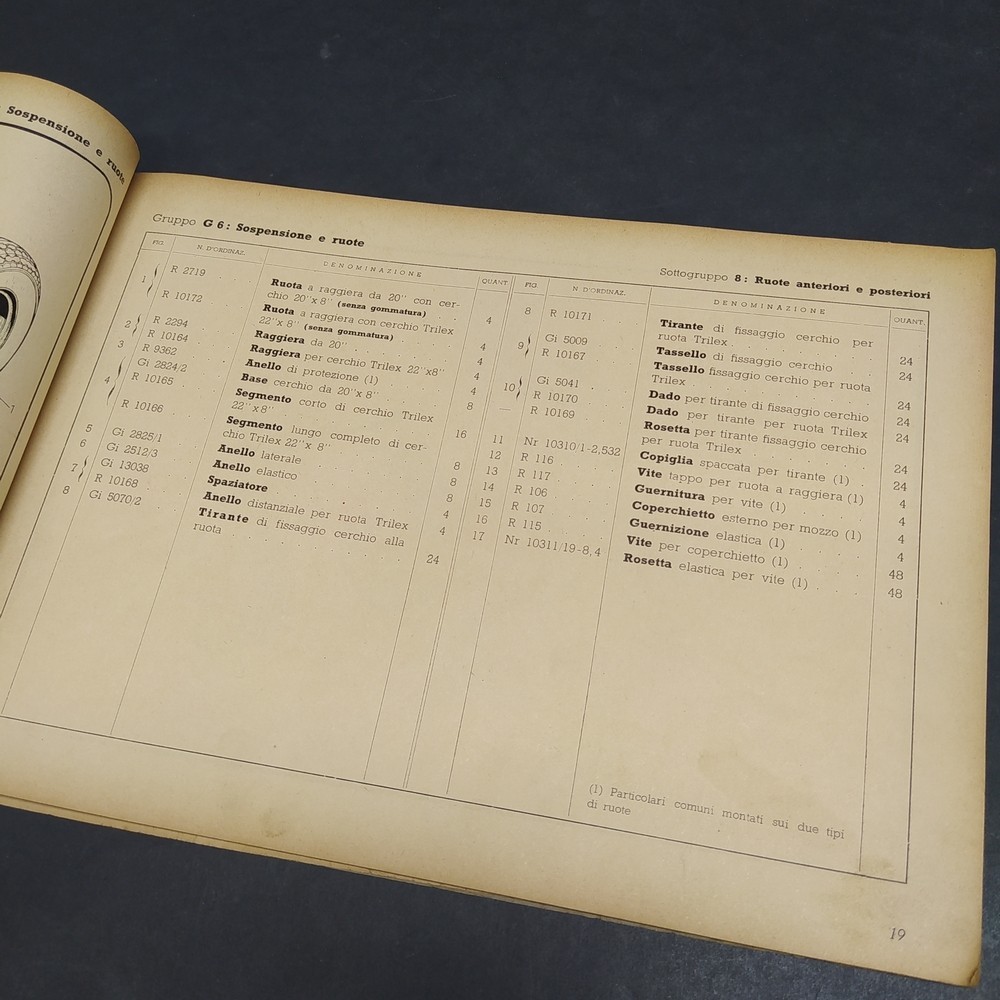 Sospensione e ruote
Gruppo G 6: Sospensione e ruote
Sottogruppo 8: Ruote anteriori e posteriori
FIG. N. D'ORDINAZ. DENOMINAZIONE QUANT.
1 R 2719 Ruota a raggiera da 20'' con cer-
chio 20''x 8'' (senza gommatura) . . 4
R 10172 Ruota a raggiera con cerchio Trilex
22''x 8'' (senza gommatura) . . 4
2 R 2294 Raggiera da 20'' . . 4
R 10164 Raggiera per cerchio Trilex 22''x8'' 4
3 R 9362 Anello di protezione (1) . . 4
4 Gi 2824/2 Base cerchio da 20''x 8'' . . 8
R 10165 Segmento corto di cerchio Trilex
22''x8'' . . 16
R 10166 Segmento lungo completo di cer-
chio Trilex 22''x 8'' . . 8
5 Gi 2825/1 Anello laterale . . 8
6 Gi 2512/3 Anello elastico . . 8
7 Gi 13038 Spaziatore . . 4
R 10168 Anello distanziale per ruota Trilex 4
8 Gi 5070/2 Tirante di fissaggio cerchio alla
ruota . . 24
FIG. N. D'ORDINAZ. DENOMINAZIONE QUANT.
8 R 10171 Tirante di fissaggio cerchio per
ruota Trilex . . 24
9 Gi 5009 Tassello di fissaggio cerchio . 24
R 10167 Tassello fissaggio cerchio per ruota
Trilex . . 24
10 Gi 5041 Dado per tirante di fissaggio cerchio 24
R 10170 Dado per tirante per ruota Trilex 24
— R 10169 Rosetta per tirante fissaggio cerchio
per ruota Trilex . . 24
11 Nr 10310/1-2,532 Copiglia spaccata per tirante (1) . 24
12 R 116 Vite tappo per ruota a raggiera (1) 4
13 R 117 Guernitura per vite (1) . . 4
14 R 106 Coperchietto esterno per mozzo (1) 4
15 R 107 Guernizione elastica (1) . . 4
16 R 115 Vite per coperchietto (1) . . 48
17 Nr 10311/19-8,4 Rosetta elastica per vite (1) . . 48
(1) Particolari comuni montati sui due tipi
di ruote
19